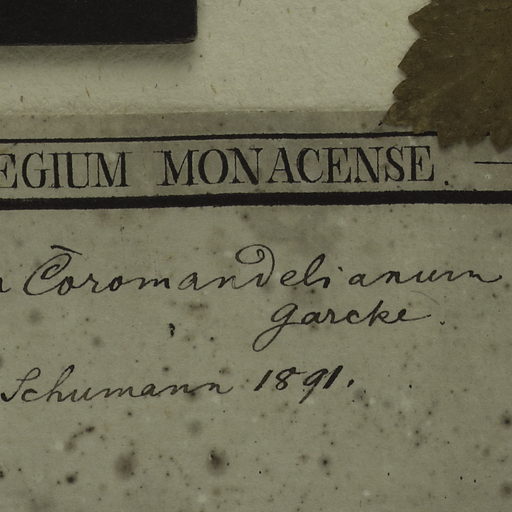 EGIUM MONACENSE.
Coromandelianum
Garcke.
Schumann 1891.